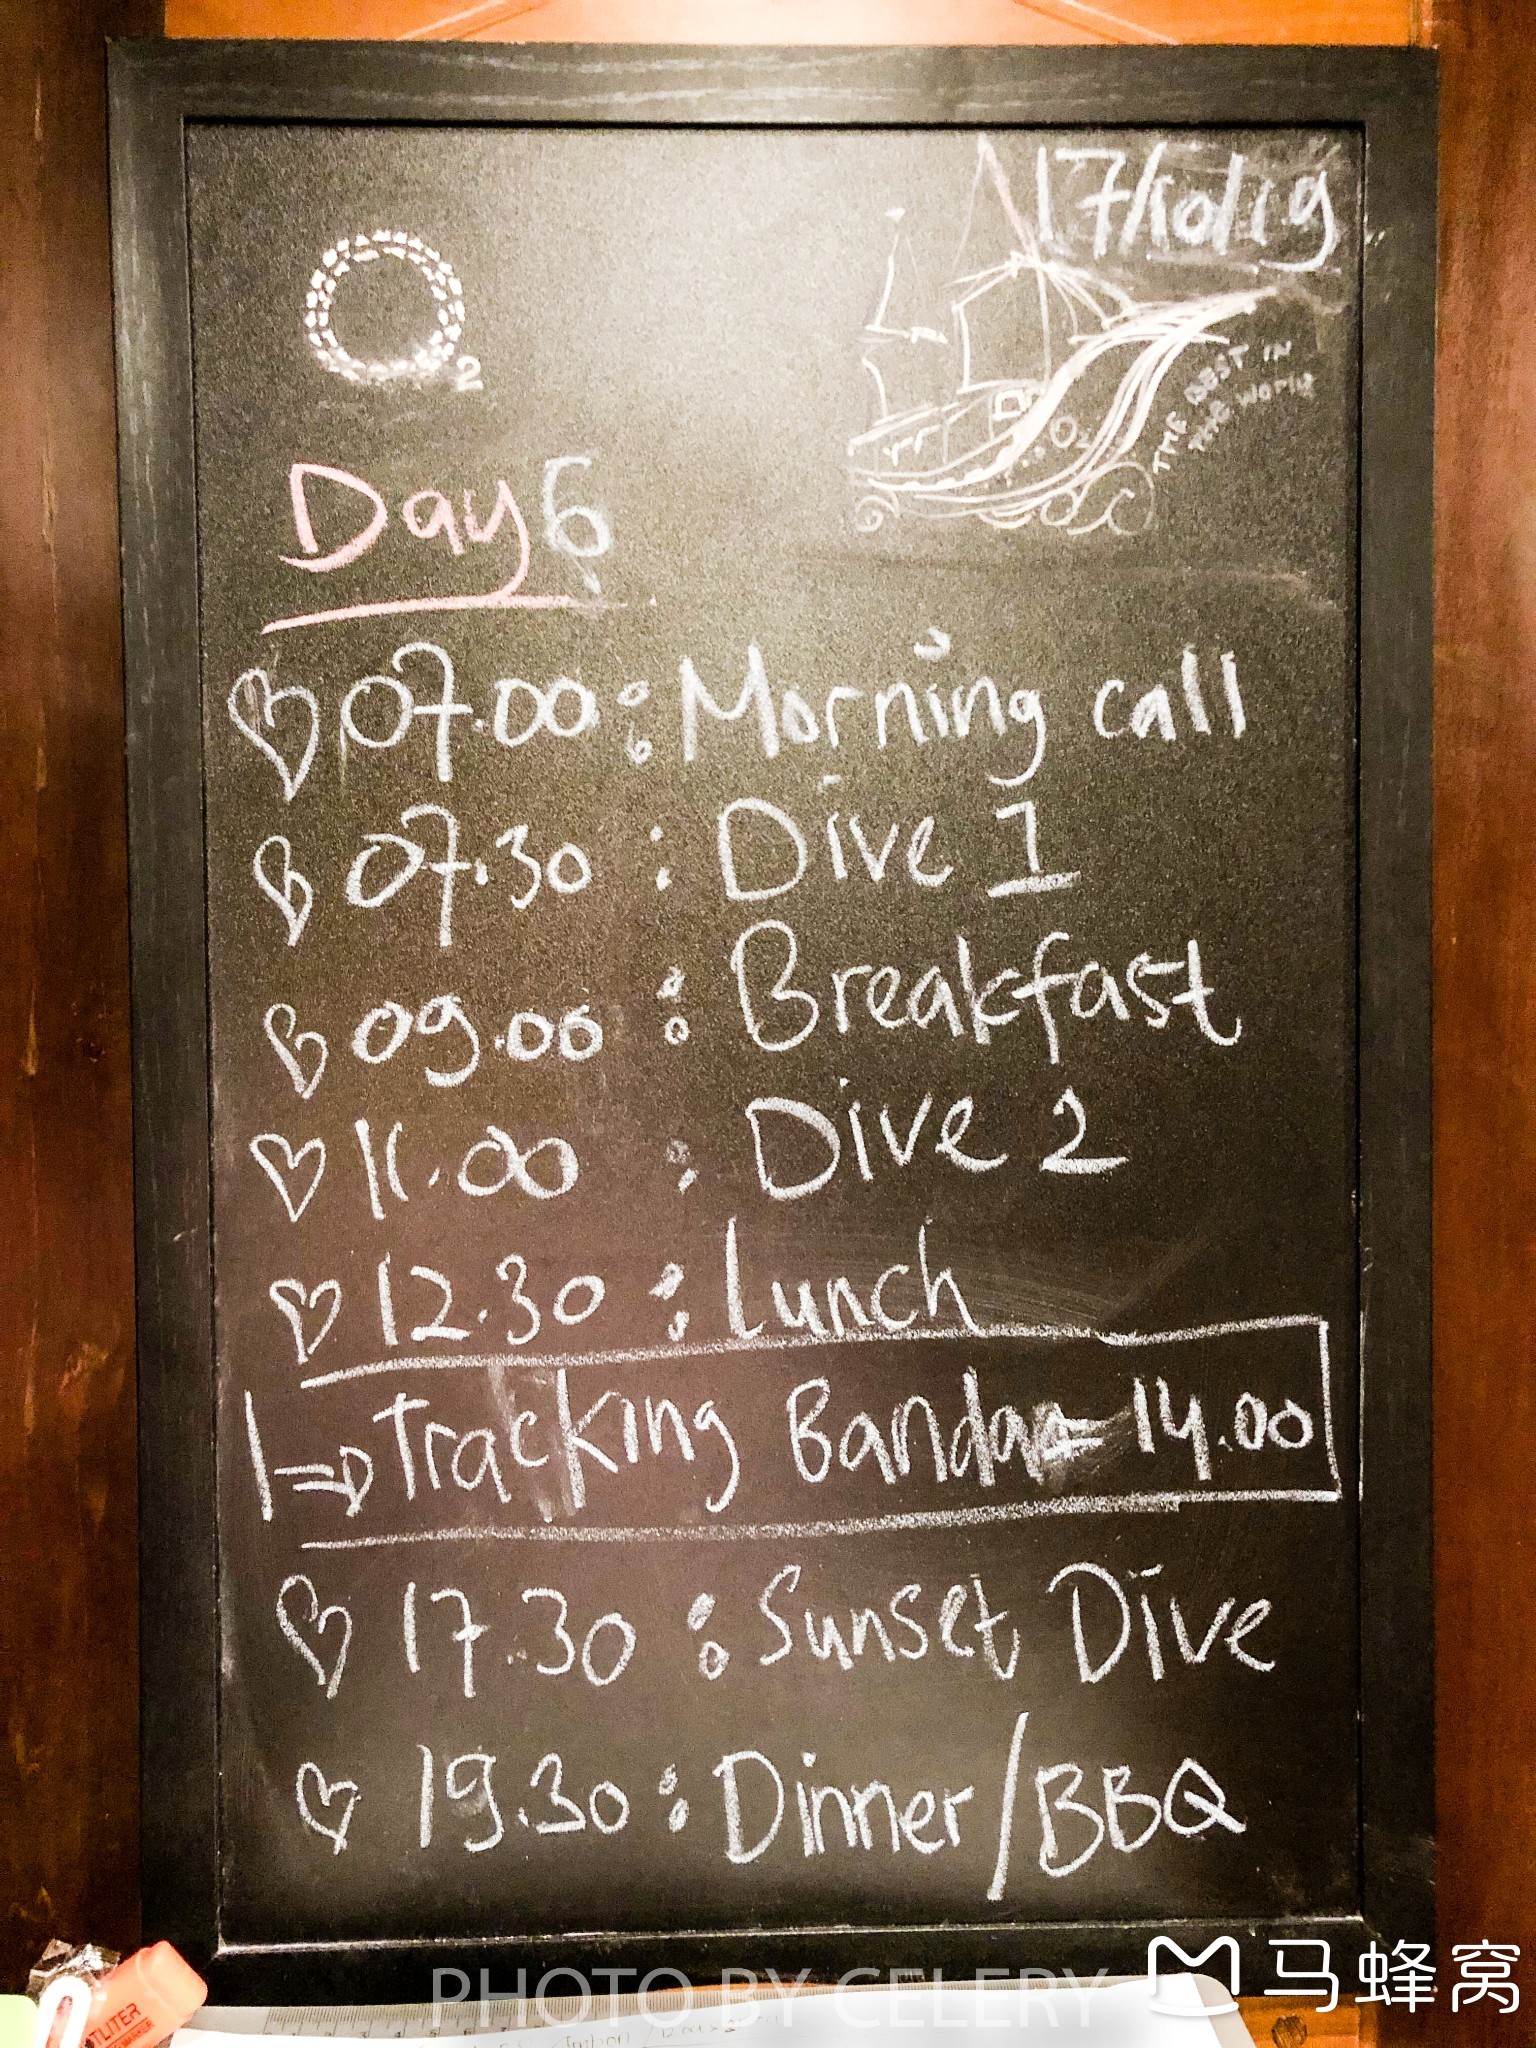 17/10/19
O2
THE BEST IN
THE WORLD
O2
Day 6
07.00 : Morning call
07.30 : Dive 1
09.00 : Breakfast
11.00 : Dive 2
12.30 : Lunch
⇒ Tracking Banda = 14.00
17.30 : Sunset Dive
19.30 : Dinner / BBQ
PHOTO BY CELERY
马蜂窝